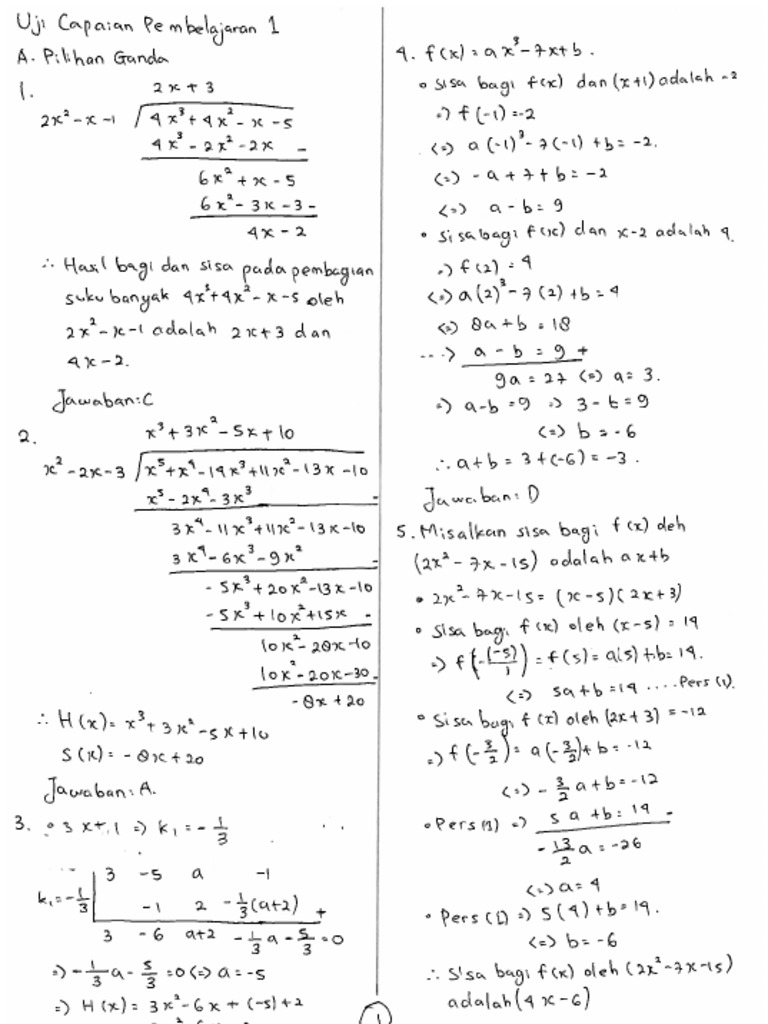 Uji Capaian Pembelajaran 1
A. Pilihan Ganda
1.
2x + 3
2x² - x - 1 √ 4x³ + 4x² - x - 5
4x³ - 2x² - 2x -
6x² + x - 5
6x² - 3x - 3 -
4x - 2
∴ Hasil bagi dan sisa pada pembagian
suku banyak 4x³+4x² - x - 5 oleh
2x² - x - 1 adalah 2x + 3 dan
4x - 2.
Jawaban: C
2.
x³ + 3x² - 5x + 10
x² - 2x - 3 √ x⁵ + x⁴ - 14x³ + 11x² - 13x - 10
x⁵ - 2x⁴ - 3x³ -
3x⁴ - 11x³ + 11x² - 13x - 10
3x⁴ - 6x³ - 9x² -
- 5x³ + 20x² - 13x - 10
- 5x³ + 10x² + 15x -
10x² - 28x - 10
10x² - 20x - 30 -
- 8x + 20
∴ H(x) = x³ + 3x² - 5x + 10
S(x) = - 8x + 20
Jawaban: A.
3. • 3x + 1 => k₁ = - 1/3
3 -5 a -1
k₁ = - 1/3 | -1 2 - 1/3(a+2) +
3 -6 a+2 - 1/3 a - 5/3 = 0
=> - 1/3 a - 5/3 = 0 <=> a = -5
=> H(x) = 3x² - 6x + (-5) + 2
4. f(x) = ax³ - 7x + b.
• sisa bagi f(x) dan (x+1) adalah -2
=> f(-1) = -2
<=> a(-1)³ - 7(-1) + b = -2.
<=> - a + 7 + b = -2
<=> a - b = 9
• sisa bagi f(x) dan x - 2 adalah 4.
=> f(2) = 4
<=> a(2)³ - 7(2) + b = 4
<=> 8a + b = 18
...> a - b = 9 +
9a = 27 <=> a = 3.
=> a - b = 9 => 3 - b = 9
<=> b = -6
∴ a + b = 3 + (-6) = -3.
Jawaban: D
5. Misalkan sisa bagi f(x) oleh
(2x² - 7x - 15) adalah ax+b
• 2x² - 7x - 15 = (x - 5)(2x + 3)
• Sisa bagi f(x) oleh (x - 5) = 14
=> f(-(-5)/1) = f(5) = a(5) + b = 14.
<=> 5a + b = 14 .... Pers (1).
• Sisa bagi f(x) oleh (2x + 3) = -12
=> f(- 3/2) = a(- 3/2) + b = -12
<=> - 3/2 a + b = -12
• Pers (1) => 5a + b = 14 -
- 13/2 a = -26
<=> a = 4
• Pers (1) => 5(4) + b = 14.
<=> b = -6
∴ Sisa bagi f(x) oleh (2x² - 7x - 15)
adalah (4x - 6)
1